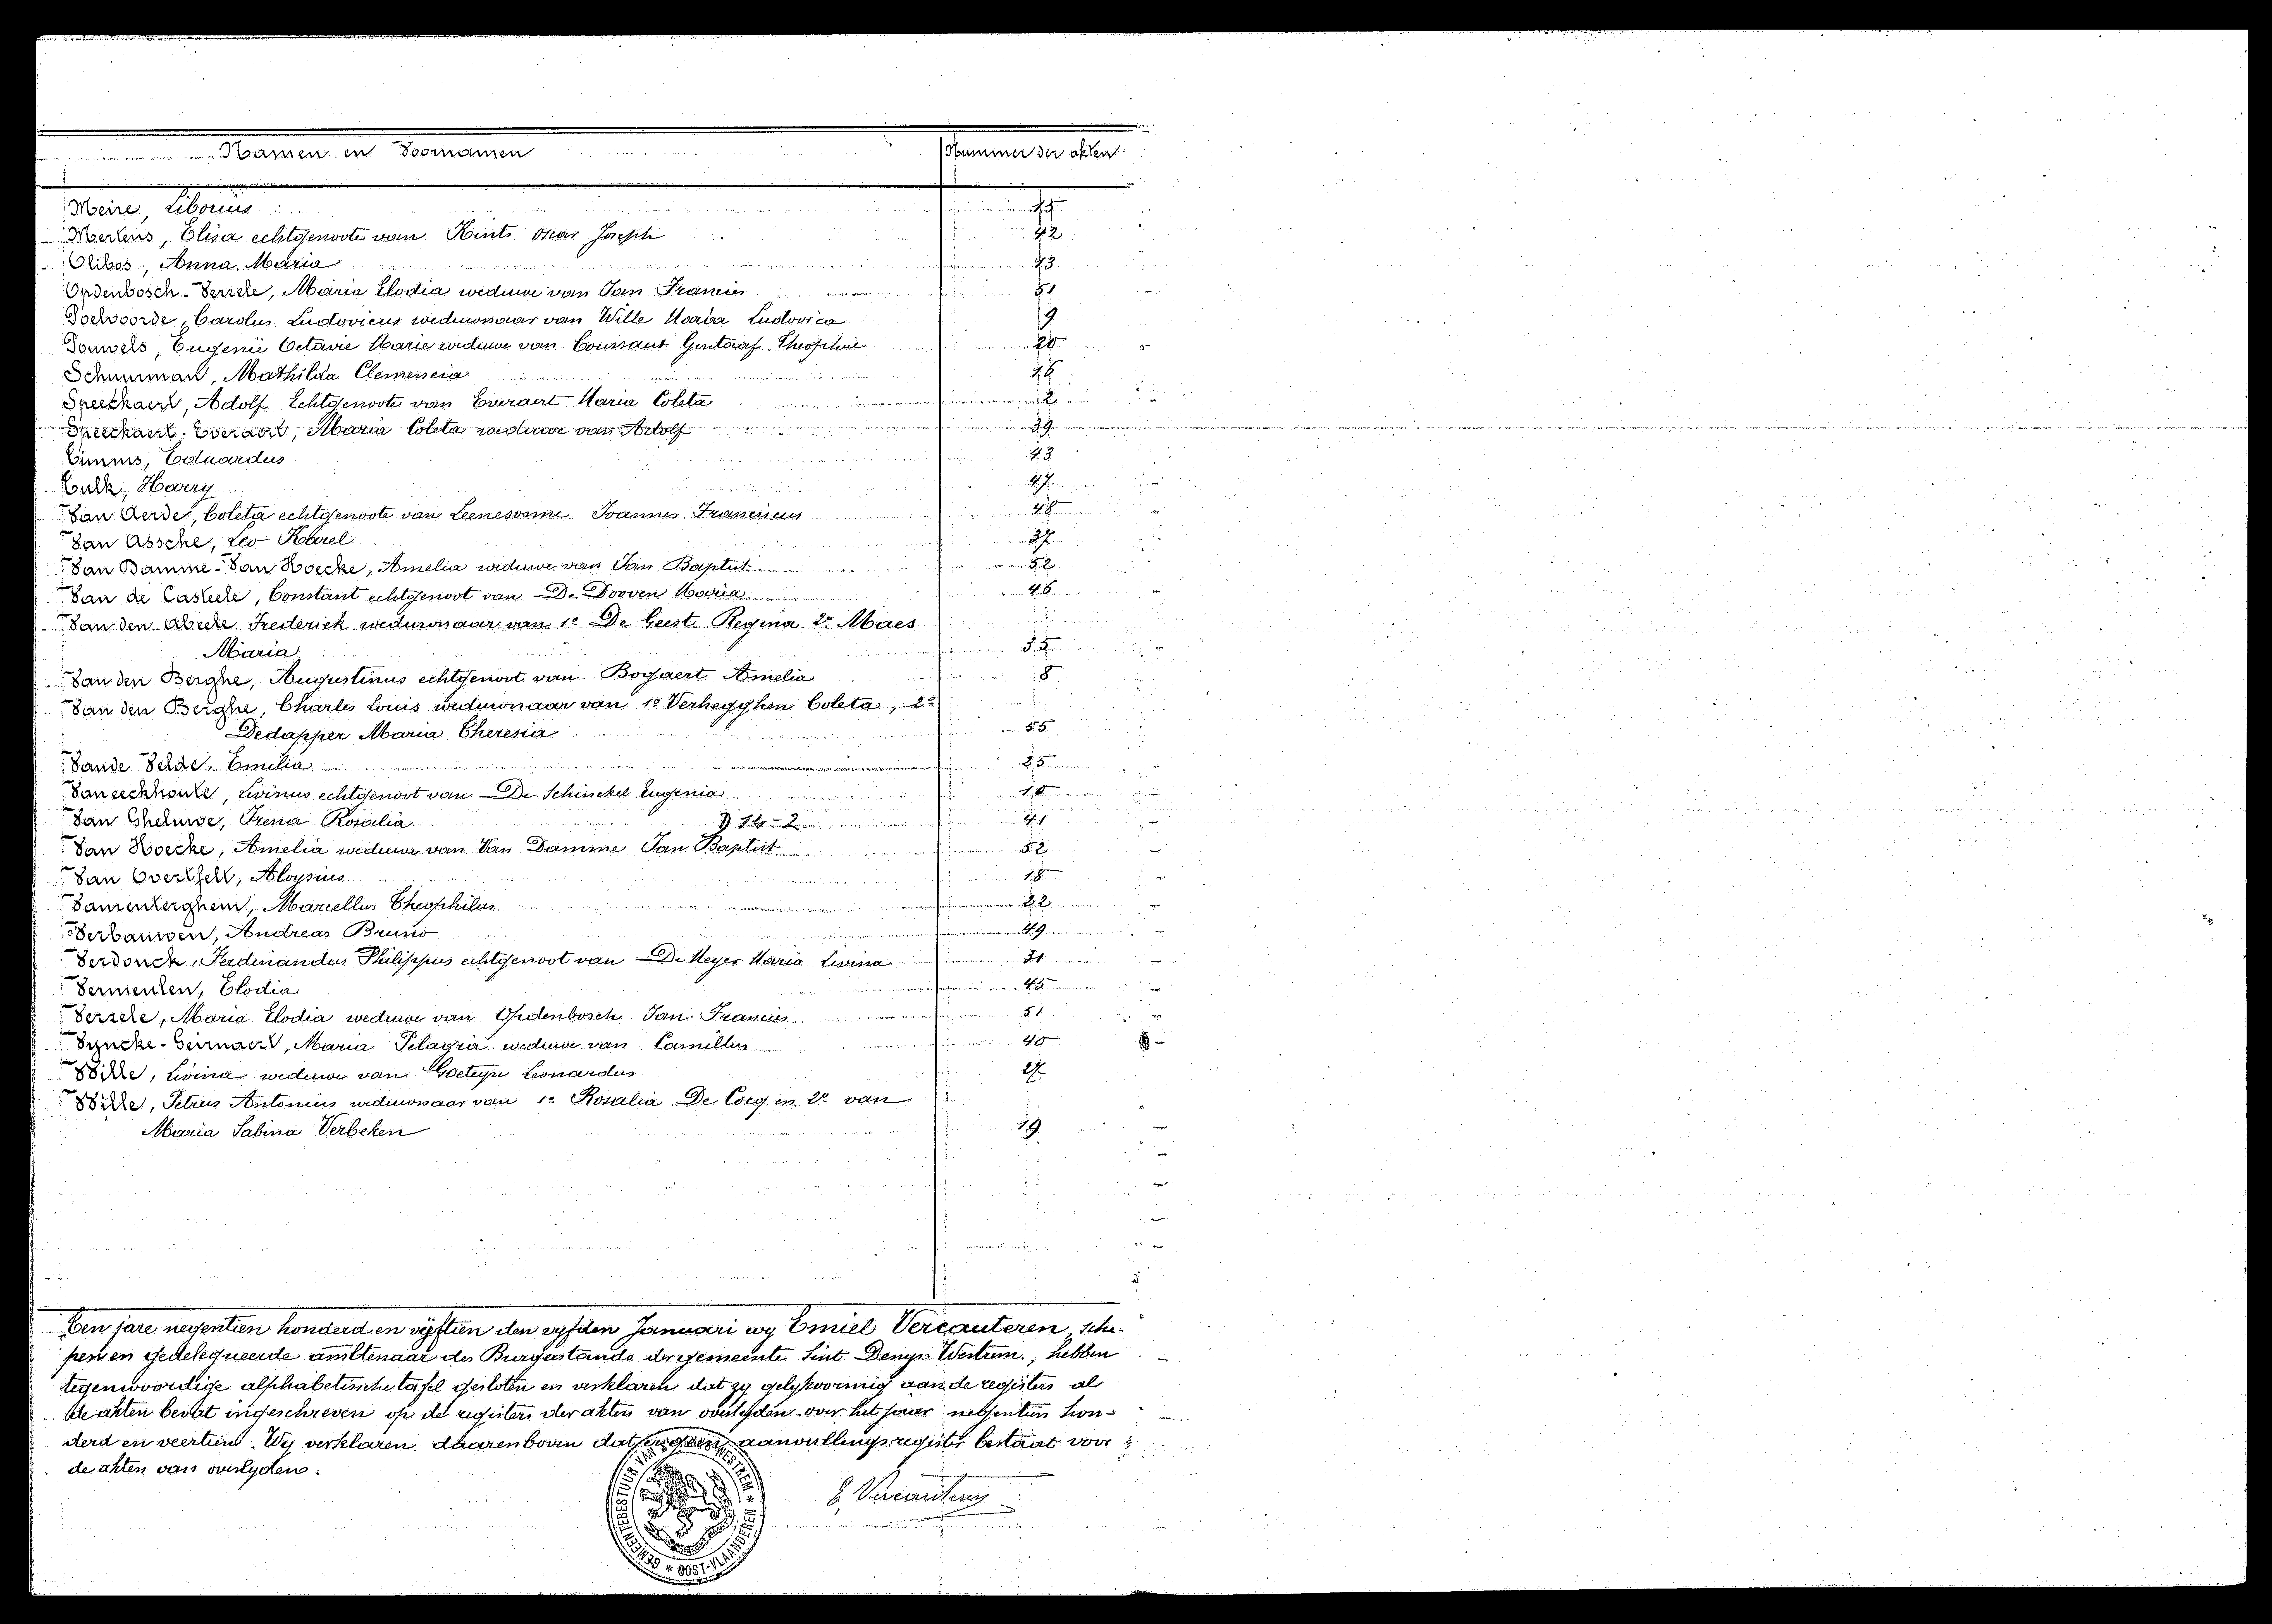 Namen en Voornamen Nummer der akten
Meire, Liborius
Mertens, Elisa echtgenoote van Kints Oscar Joseph 42
Olibos, Anna Maria
Opdenbosch-Verzele, Maria Elodia weduwe van Jan Francies 51
Poelvoorde, Carolus Ludovicus weduwnaar van Wille Maria Ludovica 9
Pouwels, Eugenie Octavie Marie weduwe van Coussaut Gustaaf Theophiel 20
Schuurman, Mathilda Clemencia
Speeckaert, Adolf Echtgenoote van Everaert Maria Coleta 2
Speeckaert-Everaert, Maria Coleta weduwe van Adolf 39
Timms, Eduardus
Tulk, Harry 47
Van Aerde, Coleta echtgenoote van Leenesonne Joannes Franciscus 48
Van Assche, Leo Karel 37
Van Damme-Van Hoecke, Amelia weduwe van Jan Baptist 52
Van de Casteele, Constant echtgenoot van De Dooven Maria 46
Van den Abeele Frederick weduwnaar van 1e De Geest Regina 2e Maes
Maria 35
Van den Berghe, Augustinus echtgenoot van Bogaert Amelia 8
Van den Berghe, Charles Louis weduwnaar van 1e Verhegghen Coleta, 2e
Dedapper Maria Theresia 55
Vande Velde, Emilia 25
Vaneeckhoute, Livinus echtgenoot van De Schinckel Eugenia 10
Van Gheluwe, Irena Rosalia D 14-2 41
Van Hoecke, Amelia weduwe van Van Damme Jan Baptist 52
Van Overtfelt, Aloysius 18
Vanrenterghem, Marcellus Theophilus 22
Verbauwen, Andreas Bruno 49
Verdonck, Ferdinandus Philippus echtgenoot van De Meyer Maria Livina 31
Vermeulen, Elodia 45
Verzele, Maria Elodia weduwe van Opdenbosch Jan Francies 51
Vyncke-Geirnaert, Maria Pelagia weduwe van Camillus 40
Wille, Livina weduwe van Goeteyn Leonardus 27
Wille, Petrus Antonius weduwnaar van 1e Rosalia De Coeg en 2e van
Maria Sabina Verbeken 19
Ten jare negentien honderd en vijftien den vyfden Januari wy Emiel Vercauteren, sche-
pen en gedelegueerde ambtenaar des Burgerstands der gemeente Sint Denys Westrem, hebben
tegenwoordige alphabetische tafel gesloten en verklaren dat zy gelykvormig aan de registers al
de akten bevat ingeschreven op de registers der akten van overlyden over het jaar negentien hon-
derd en veertien. Wy verklaren daarenboven dat er geen aanvullingsregister bestaat voor
de akten van overlyden.
E. Vercauteren
GEMEENTEBESTUUR VAN S. DENYS WESTREM * OOST-VLAANDEREN *